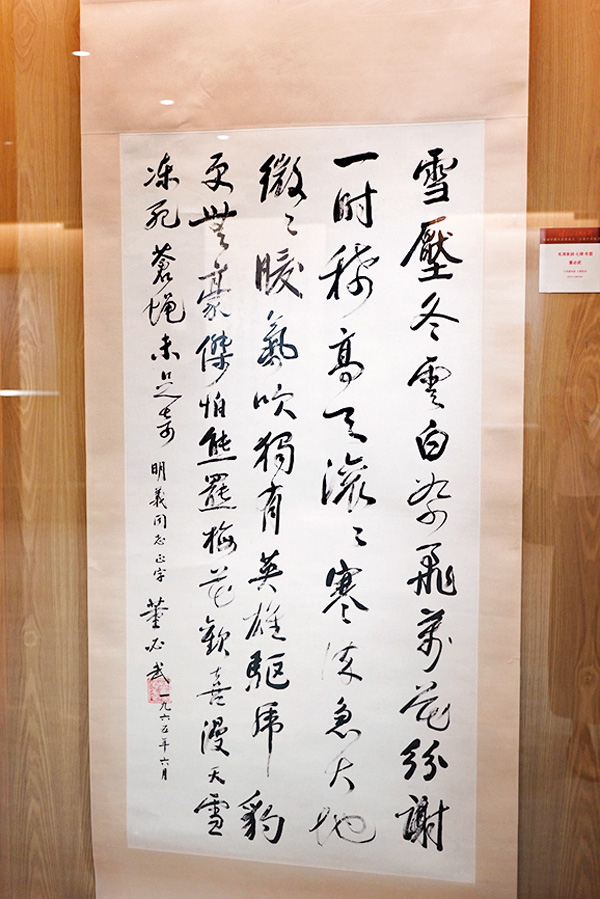 雪壓冬雲白絮飛萬花紛謝
一时稀高天滚〻寒流急大地
微〻暖氣吹獨有英雄驅虎豹
更無豪傑怕熊羆梅花歡喜漫天雪
凍死蒼蝇未足奇 明義同志正字 董必武
一九六五年六月
毛泽东诗 七律·冬云
董必武